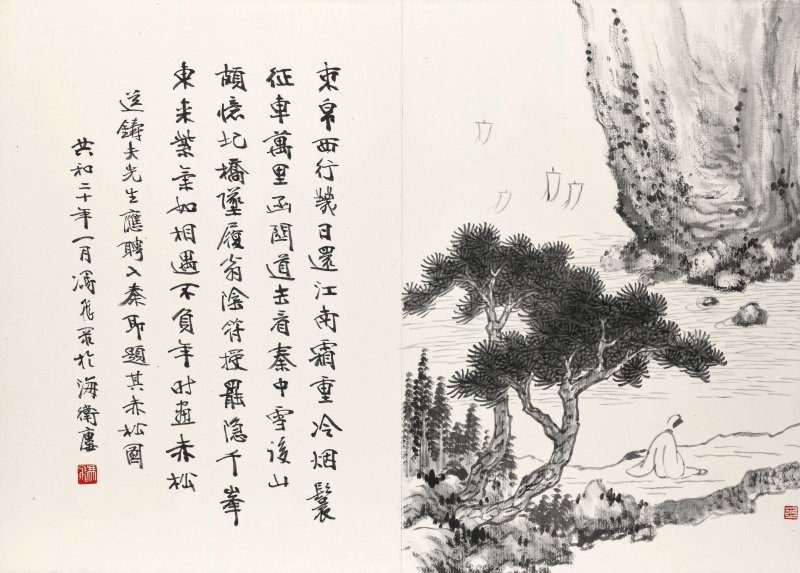 束帛西行幾日還江南霜重冷烟鬟
征車萬里函關道去看秦中雪後山
頗憶圯橋墜履翁陰符授罷隱千峯
東来紫氣如相遇不負年时畫赤松
送鑄夫先生應聘入秦即題其赤松圖
共和二十年一月馮飛於海衛廔